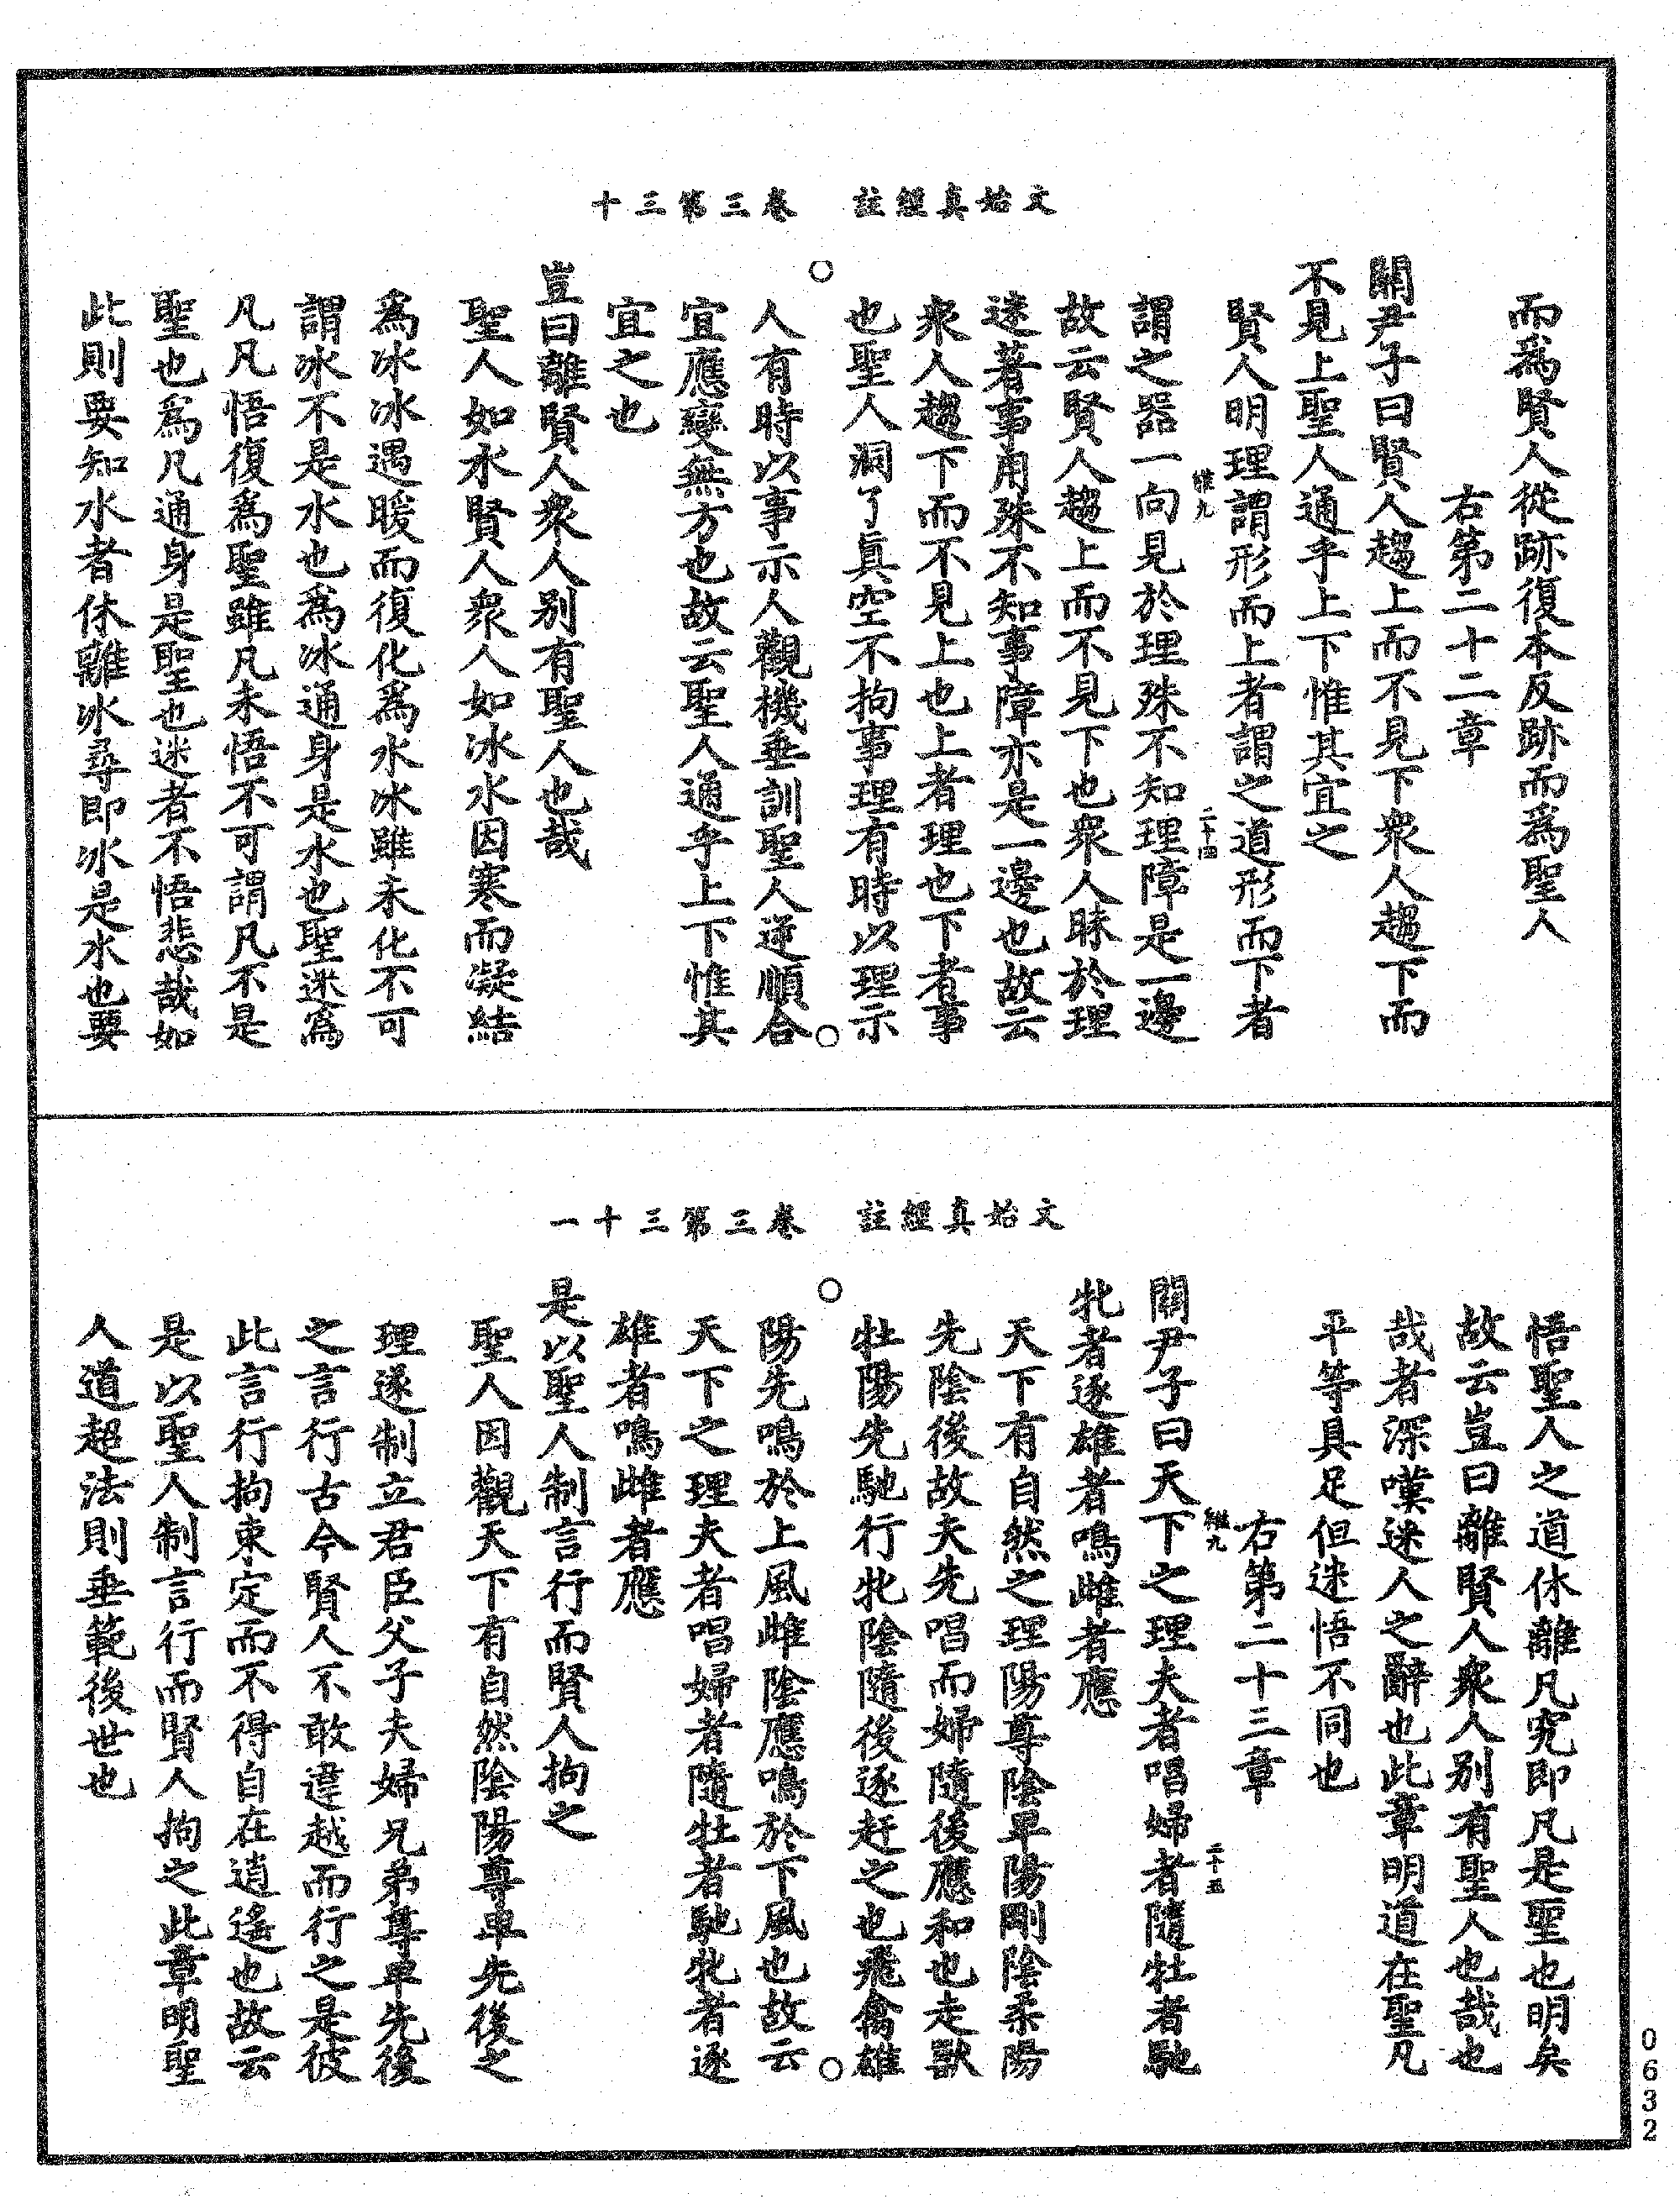 文始真經註　卷三第三十
而爲賢人從跡復本反跡而爲聖人
右第二十二章
關尹子曰賢人趨上而不見下衆人趨下而
不見上聖人通乎上下惟其宜之
賢人明理謂形而上者謂之道形而下者
二十四
謂之器一向見於理殊不知理障是一邊
故云賢人趨上而不見下也衆人昧於理
迷著事用殊不知事障亦是一邊也故云
衆人趨下而不見上也上者理也下者事
也聖人洞了眞空不拘事理有時以理示
人有時以事示人觀機垂訓聖人逆順合
宜應變無方也故云聖人通乎上下惟其
宜之也
豈曰離賢人衆人别有聖人也哉
聖人如水賢人衆人如冰水因寒而凝結
爲冰冰遇暖而復化爲水冰雖未化不可
謂冰不是水也爲冰通身是水也聖迷爲
凡凡悟復爲聖雖凡未悟不可謂凡不是
聖也爲凡通身是聖也迷者不悟悲哉如
此則要知水者休離冰尋即冰是水也要
文始真經註　卷三第三十一
悟聖人之道休離凡究即凡是聖也明矣
故云豈曰離賢人衆人别有聖人也哉也
哉者深嘆迷人之辭也此章明道在聖凡
平等具足但迷悟不同也
右第二十三章
二十五
關尹子曰天下之理夫者唱婦者隨牡者馳
牝者逐雄者鳴雌者應
天下有自然之理陽尊陰卑陽剛陰柔陽
先陰後故夫先唱而婦隨後應和也走獸
牡陽先馳行牝陰隨後逐赶之也飛禽雄
陽先鳴於上風雌陰應鳴於下風也故云
天下之理夫者唱婦者隨牡者馳牝者逐
雄者鳴雌者應
是以聖人制言行而賢人拘之
聖人因觀天下有自然陰陽尊卑先後之
理遂制立君臣父子夫婦兄弟尊卑先後
之言行古今賢人不敢違越而行之是彼
此言行拘束定而不得自在逍遙也故云
是以聖人制言行而賢人拘之此章明聖
人道超法則垂範後世也
0632